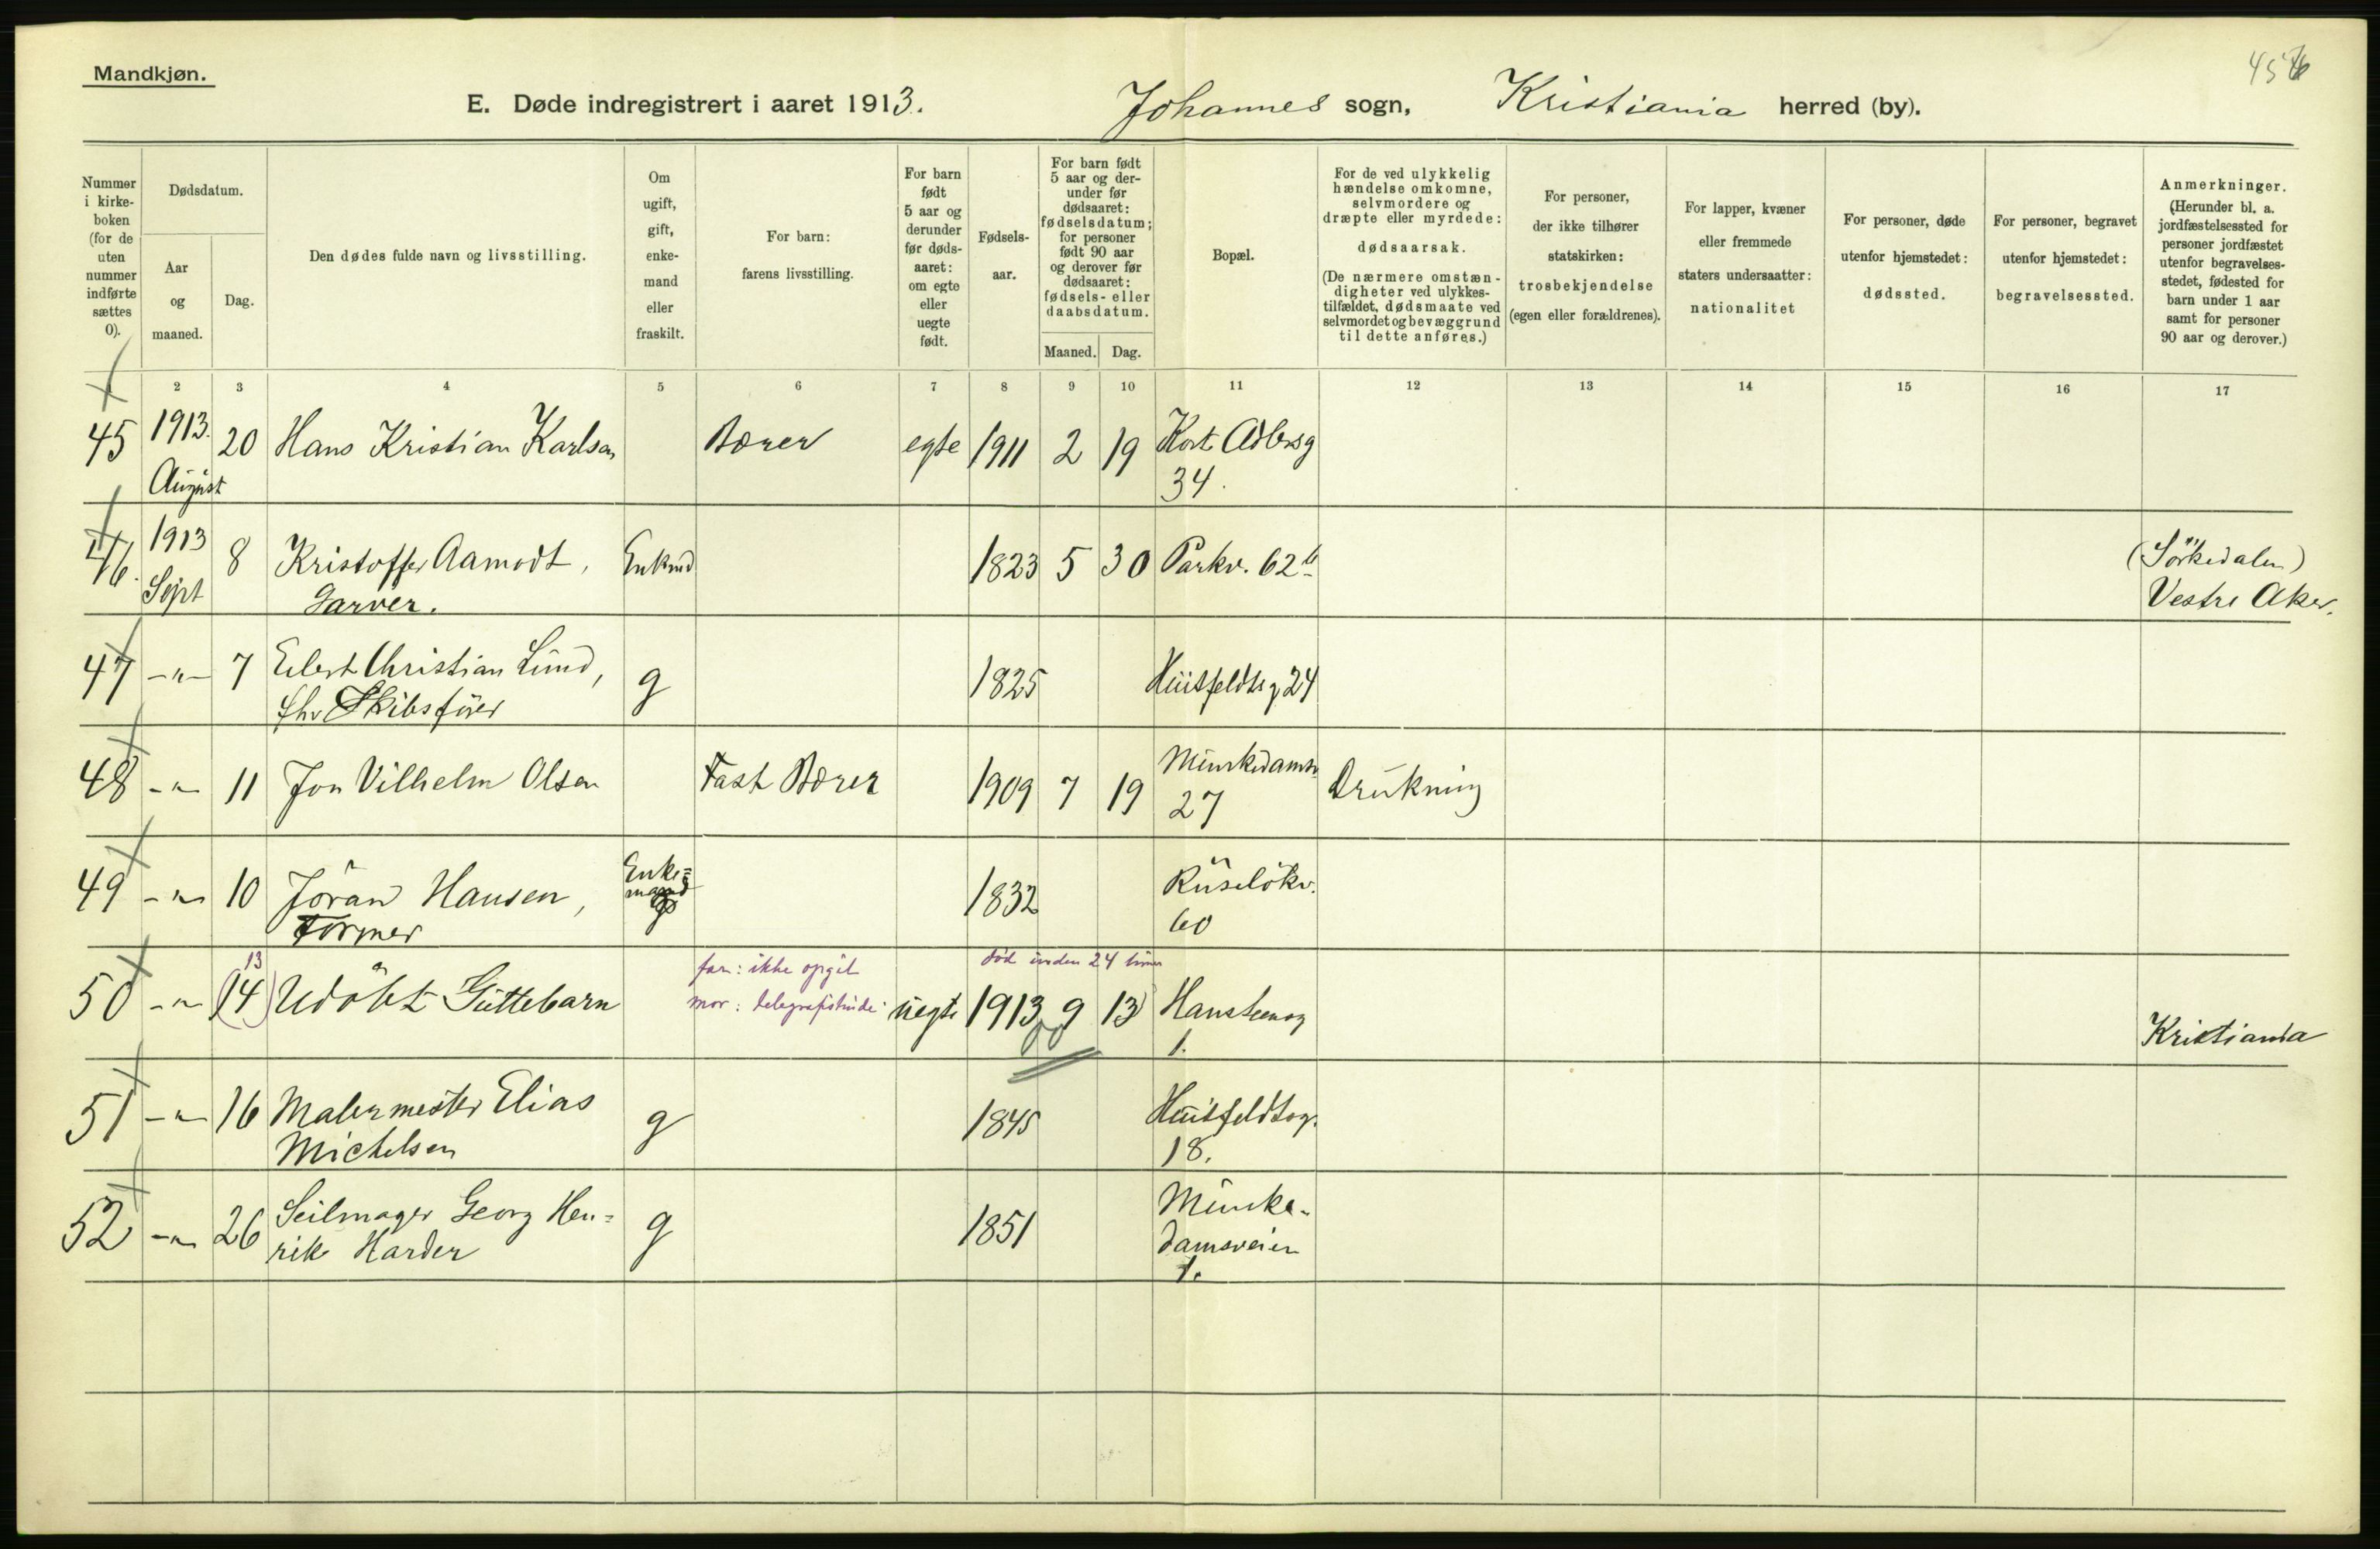 Mandkjøn.
E. Døde indregistrert i aaret 1913. Johannes sogn, Kristiania herred (by).
Nummer
i kirke-
boken
(for de
uten
nummer
indførte
sættes
0).
Dødsdatum.
Aar
og
maaned.
Dag.
Den dødes fulde navn og livsstilling.
Om
ugift,
gift,
enke-
mand
eller
fraskilt.
For barn:
farens livsstilling.
For barn
født
5 aar og
derunder
før døds-
aaret:
om egte
eller
uegte
født.
Fødsels-
aar.
For barn født
5 aar og der-
under før
dødsaaret:
fødselsdatum;
for personer
født 90 aar
og derover før
dødsaaret:
fødsels- eller
daabsdatum.
Maaned. Dag.
Bopæl.
For de ved ulykkelig
hændelse omkomne,
selvmordere og
dræpte eller myrdede:
dødsaarsak.
(De nærmere omstæn-
digheter ved ulykkes-
tilfældet, dødsmaate ved
selvmordet og bevæggrund
til dette anføres.)
For personer,
der ikke tilhører
statskirken:
trosbekjendelse
(egen eller forældrenes).
For lapper, kvæner
eller fremmede
staters undersaatter:
nationalitet
For personer, døde
utenfor hjemstedet:
dødssted.
For personer, begravet
utenfor hjemstedet:
begravelsessted.
Anmerkninger.
(Herunder bl. a.
jordfæstelsessted for
personer jordfæstet
utenfor begravelses-
stedet, fødested for
barn under 1 aar
samt for personer
90 aar og derover.)
1 2 3 4 5 6 7 8 9 10 11 12 13 14 15 16 17
45 1913. 20 Hans Kristian Karlsen Bærer egte 1911 2 19 Kort Adlersg
August 34.
46. 1913 8 Kristoffer Aamodt, Enkmd 1823 5 30 Parkv. 62b (Sörkedalen)
Sept Garver. Vestre Aker.
47 -"- 7 Eilert Christian Lund, g 1825 Huitfeldtsg 24
fhv Skibsfører
48 -"- 11 Jon Vilhelm Olsen Fast Bærer 1909 7 19 Munkedamsv Drukning
27
49 -"- 10 Jöran Hansen, Enke=
mand 1832 Ruselökv.
Tormer 60
13 far: ikke opgit död inden 24 timer
50 -"- (14) Udöbt Guttebarn mor: telegrafistinde uegte 1913 9 13 Hansteensg
1. Kristiania
51 -"- 16 Malermester Elias g 1845 Huitfeldtsg.
Michelsen 18.
52 -"- 26 Seilmager Georg Hen= g 1851 Munke-
rik Harder damsveien
1.